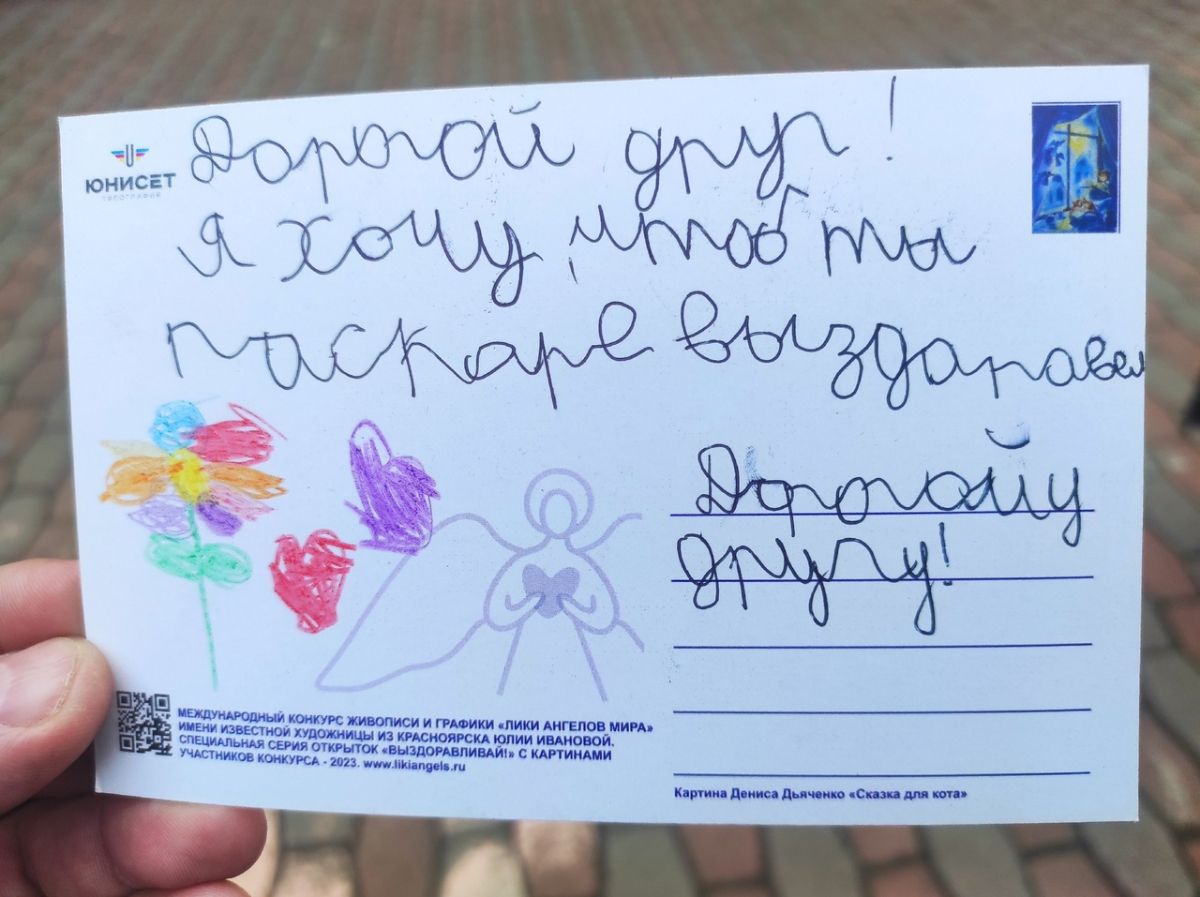 ЮНИСЕТ
ТИПОГРАФИЯ
Дорогой друг!
Я хочу, чтоб ты
паскаре выздаравел
Дорогойу
другу!
МЕЖДУНАРОДНЫЙ КОНКУРС ЖИВОПИСИ И ГРАФИКИ «ЛИКИ АНГЕЛОВ МИРА»
ИМЕНИ ИЗВЕСТНОЙ ХУДОЖНИЦЫ ИЗ КРАСНОЯРСКА ЮЛИИ ИВАНОВОЙ.
СПЕЦИАЛЬНАЯ СЕРИЯ ОТКРЫТОК «ВЫЗДОРАВЛИВАЙ!» С КАРТИНАМИ
УЧАСТНИКОВ КОНКУРСА - 2023. www.likiangels.ru
Картина Дениса Дьяченко «Сказка для кота»